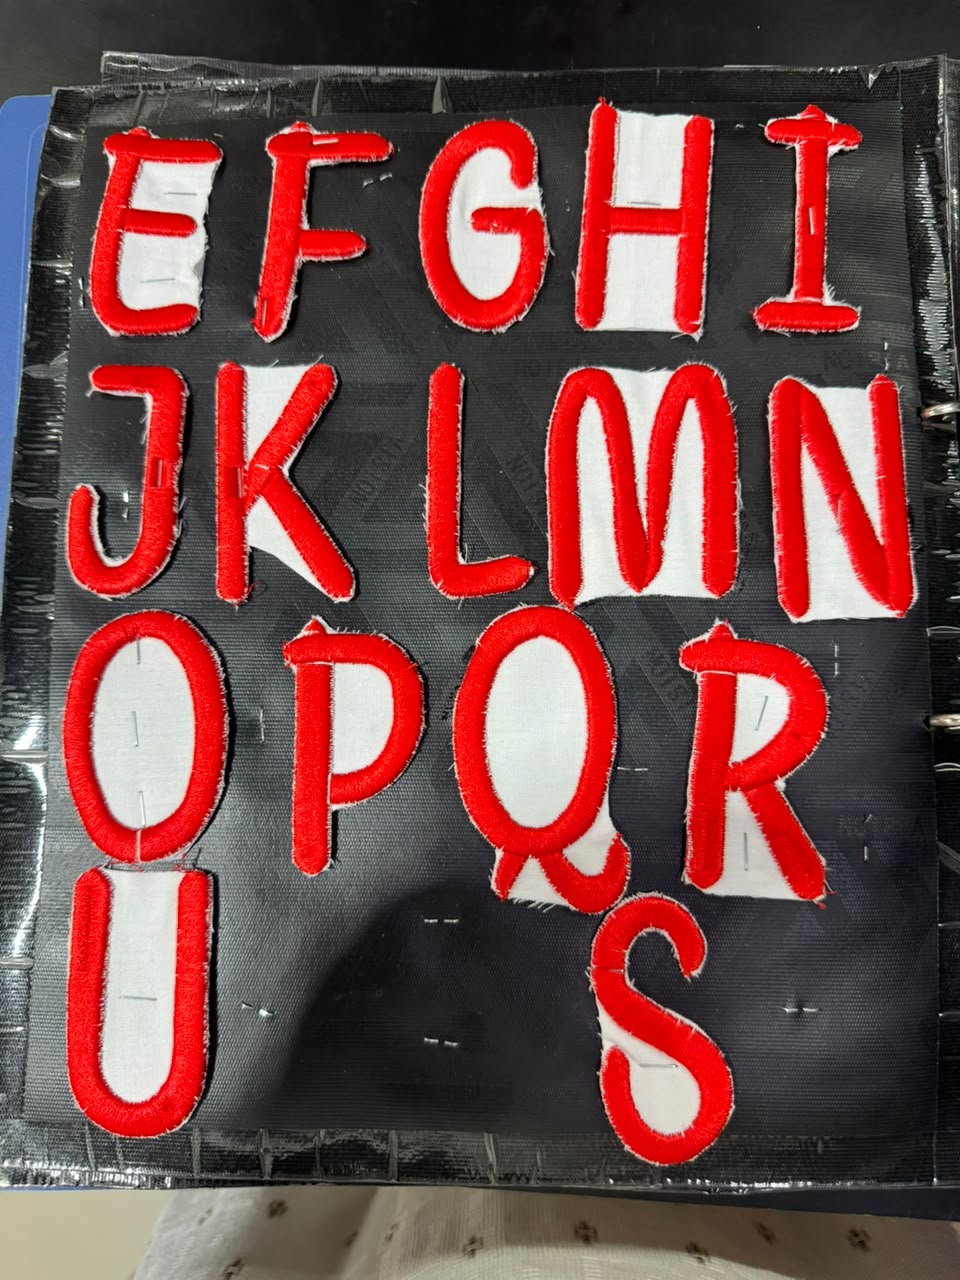 E F G H I
J K L M N
O P Q R
U S